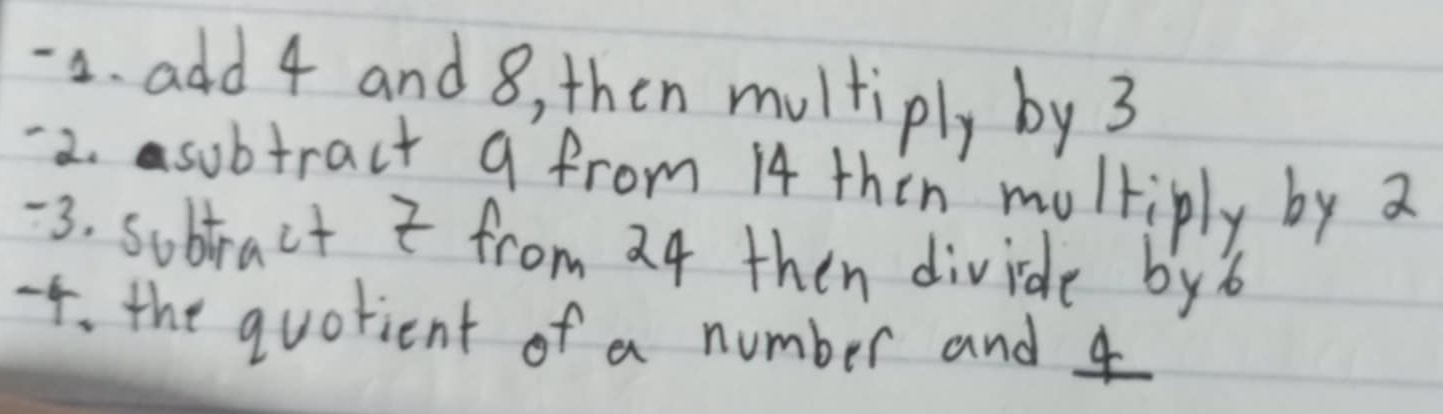 -1. add 4 and 8, then multiply by 3
-2. subtract 9 from 14 then multiply by 2
-3. subtract z from 24 then divide by 6
-4. the quotient of a number and 4